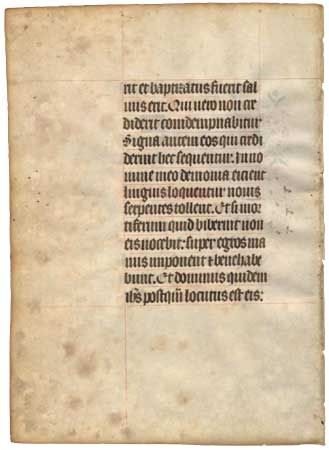 rit et baptizatus fuerit sal
uus erit. Qui uero non cre
diderit condempnabitur.
Signa autem eos qui credi
derint hec sequentur. In no
mine meo demonia eicient
linguis loquentur nouis
serpentes tollent. Et si mor
tiferum quid biberint non
eis nocebit: super egros ma
nus imponent et bene habe
bunt. Et dominus quidem
ihs postqm locutus est eis: